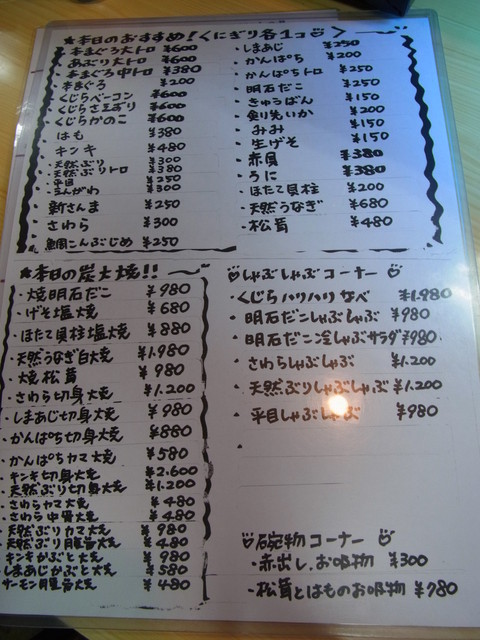 ★本日のおすすめ!〈にぎり各1コ〉
・本まぐろ大トロ ¥600
・あぶり大トロ ¥600
・本まぐろ中トロ ¥380
・本まぐろ ¥200
・くじらベーコン ¥600
・くじらさえずり ¥600
・くじらかのこ ¥600
・はも ¥380
・キンキ ¥480
・天然ぶり ¥300
・天然ぶりトロ ¥380
・平目 ¥250
・えんがわ ¥300
・新さんま ¥250
・さわら ¥300
・鯛こんぶじめ ¥250
・しまあじ ¥250
・かんぱち ¥200
・かんぱちトロ ¥250
・明石だこ ¥250
・きゅうばん ¥150
・剣先いか ¥200
・みみ ¥150
・生げそ ¥150
・赤貝 ¥380
・うに ¥380
・ほたて貝柱 ¥200
・天然うなぎ ¥680
・松茸 ¥480
★本日の炭火焼!!
・焼明石だこ ¥980
・げそ塩焼 ¥680
・ほたて貝柱塩焼 ¥880
・天然うなぎ白焼 ¥1.980
・焼松茸 ¥980
・さわら切身火焼 ¥1.200
・しまあじ切身火焼 ¥980
・かんぱち切身火焼 ¥880
・かんぱちカマ火焼 ¥580
・キンキ切身火焼 ¥2.600
・天然ぶり切身火焼 ¥1.200
・さわらカマ火焼 ¥480
・さわら中骨火焼 ¥480
・天然ぶりカマ火焼 ¥980
・天然ぶり腹骨火焼 ¥480
・キンキかぶと火焼 ¥980
・しまあじかぶと火焼 ¥580
・サーモン腹骨火焼 ¥480
♡しゃぶしゃぶコーナー♡
・くじらハリハリなべ ¥1.980
・明石だこしゃぶしゃぶ ¥980
・明石だこ冷しゃぶサラダ ¥980
・さわらしゃぶしゃぶ ¥1.200
・天然ぶりしゃぶしゃぶ ¥1.200
・平目しゃぶしゃぶ ¥980
♡碗物コーナー♡
・赤出し、お吸物 ¥300
・松茸とはものお吸物 ¥780